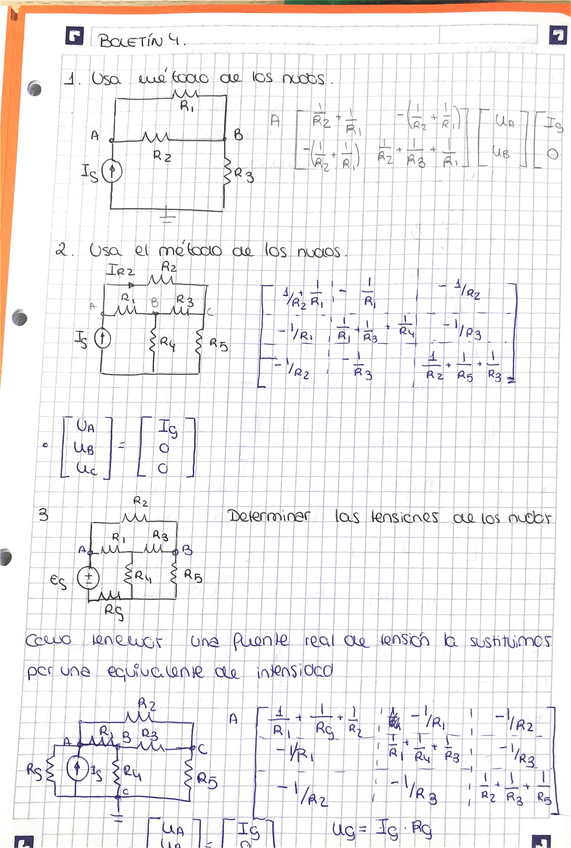 BOLETÍN 4.
1. Usa método de los nudos.
R1
A B
R2
IS R3
A [ 1/R2 + 1/R1 -(1/R2 + 1/R1) ] [ UA ] [ Ig
-(1/R2 + 1/R1) 1/R2 + 1/R3 + 1/R1 UB 0
2. Usa el método de los nudos.
IR2 R2
A R1 B R3 C
IS R4 R5
1/R2 + 1/R1 - 1/R1 - 1/R2
-1/R1 1/R1 + 1/R3 + 1/R4 -1/R3
-1/R2 - 1/R3 1/R2 + 1/R5 + 1/R3
UA Ig
UB = 0
UC 0
3 Determinar las tensiones de los nudos
R2
A R1 R3 B
eg R4 R5
Rg
Como tenemos una fuente real de tensión la sustituimos
por una equivalente de intensidad
R2
A R1 B R3 C
RS IS R4 R5
C
A 1/R1 + 1/Rg + 1/R2 -1/R1 -1/R2
-1/R1 1/R1 + 1/R4 + 1/R3 -1/R3
-1/R2 -1/R3 1/R2 + 1/R3 + 1/R5
[ UA ] = [ Ig Ug = Ig · Rg